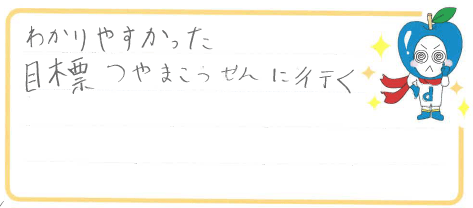 わかりやすかった
目標 つやまこうせんに行く
d